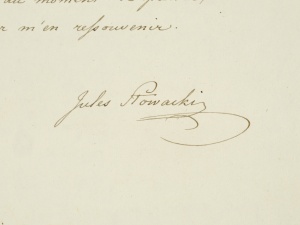 au moment
r m'en ressouvenir.
Jules Słowacki